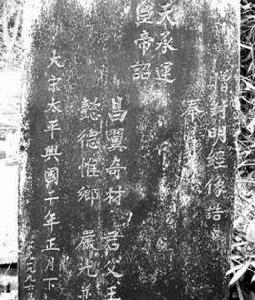 贈封明經像誥
奉
天承運
皇帝詔
昌翼奇材 君父王
懿德惟鄉 嚴光
大宗太平興國十年正月下